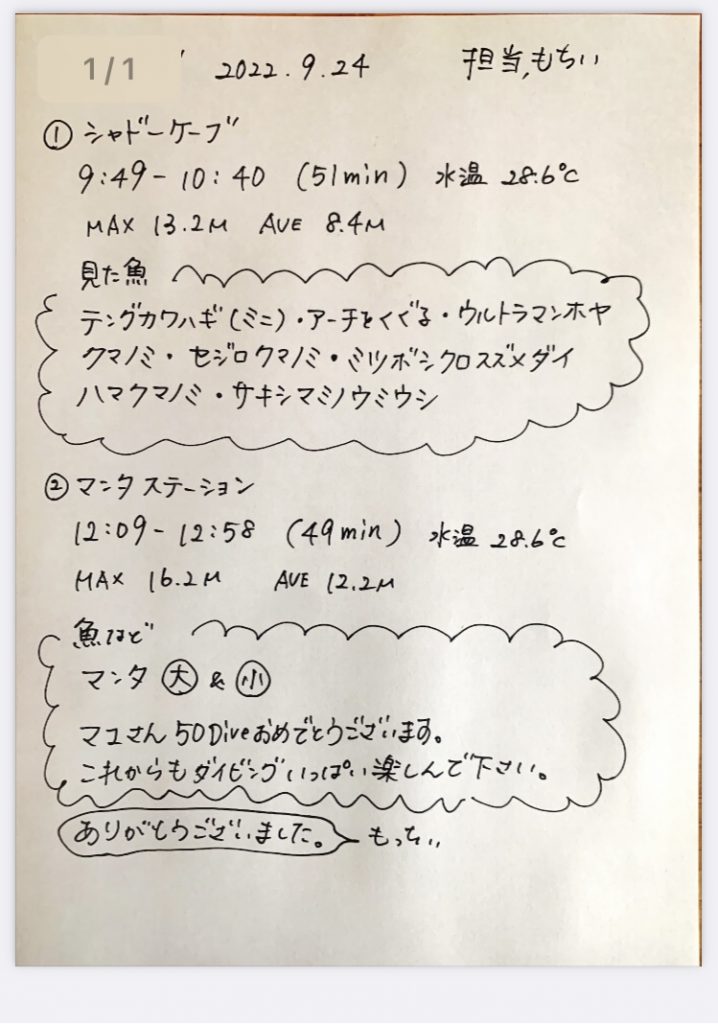 1/1
2022.9.24 担当,もちい
① シャドーケーブ
9:49-10:40 (51min) 水温 28.6℃
MAX 13.2M AVE 8.4M
見た魚
テングカワハギ(ミニ)・アーチをくぐる・ウルトラマンホヤ
クマノミ・セジロクマノミ・ミツボシクロスズメダイ
ハマクマノミ・サキシマミノウミウシ
② マンタステーション
12:09-12:58 (49min) 水温 28.6℃
MAX 16.2M AVE 12.2M
魚など
マンタ 大 & 小
マユさん 50Diveおめでとうございます。
これからもダイビングいっぱい楽しんで下さい。
ありがとうございました。 もっちぃ